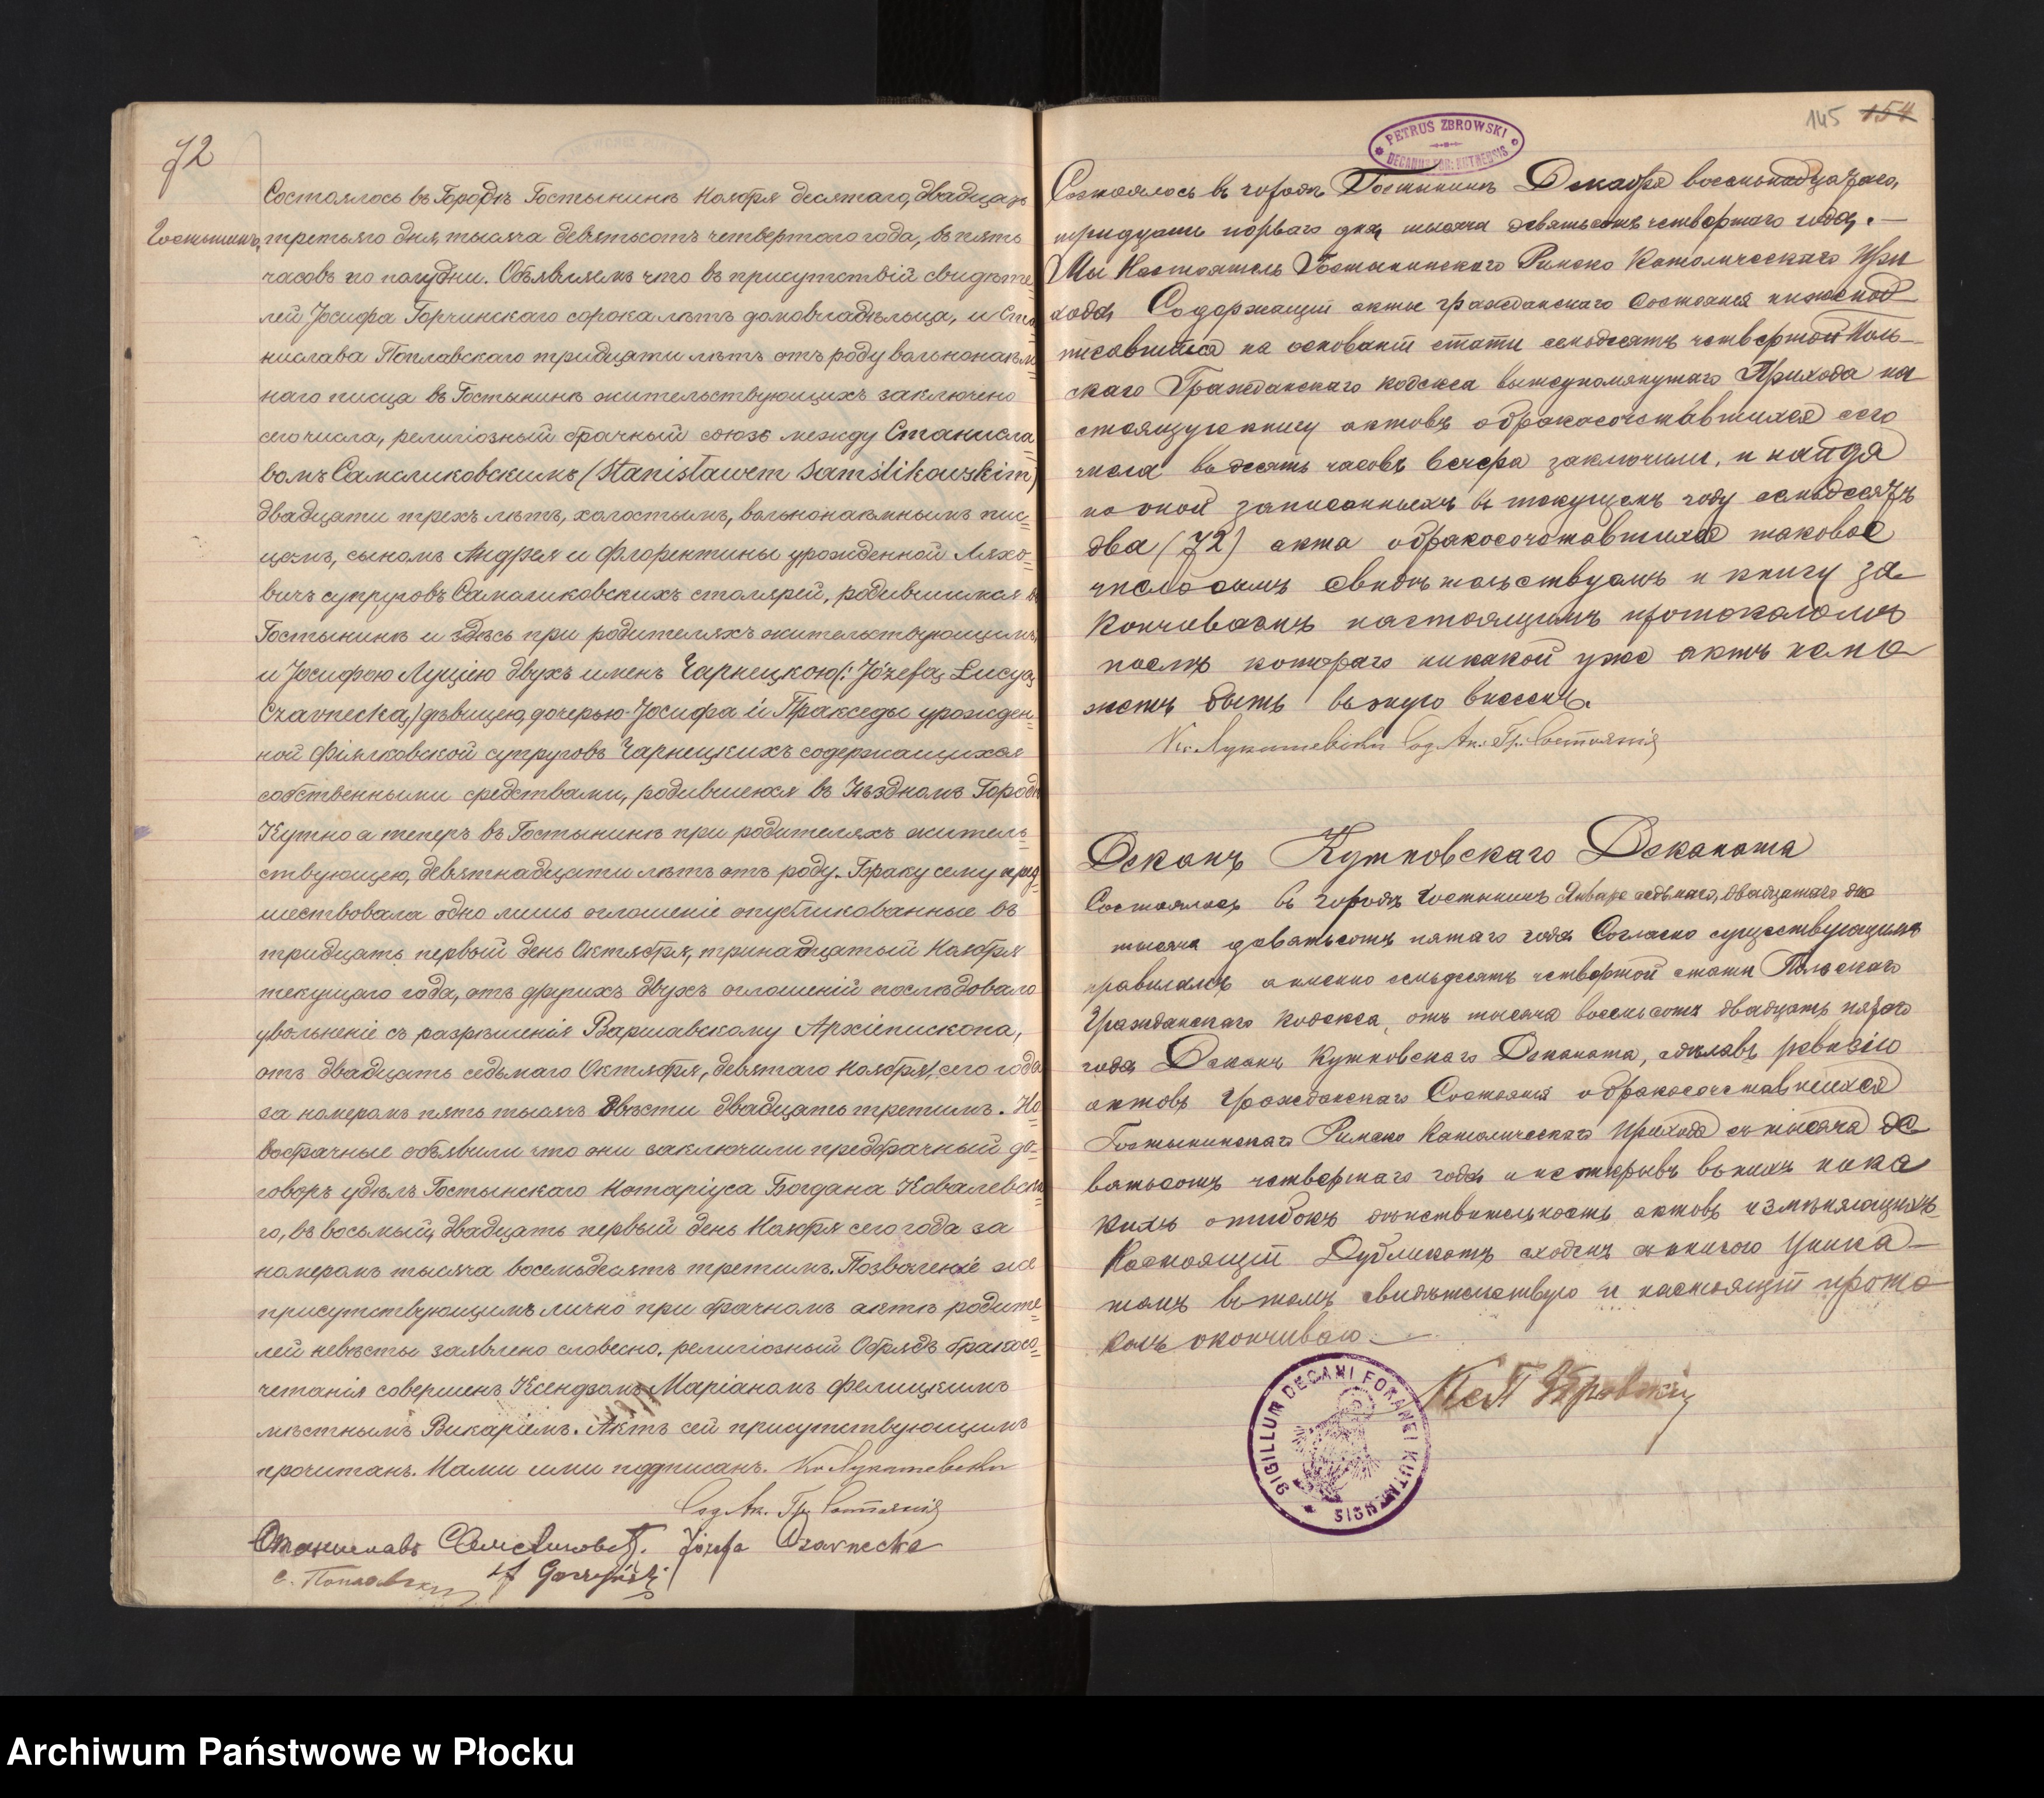 72
Гостынинъ
Состоялось въ Городѣ Гостынинѣ Ноября десятаго, двадцать
третьяго дня, тысяча девятьсотъ четвертаго года, въ пять
часовъ по полудни. Объявляемъ что въ присутствіи свидѣте=
лей Іосифа Горчинскаго сорока лѣтъ домовладѣльца, и Ста=
нислава Поплавскаго тридцати лѣтъ отъ роду вольнонаем=
наго писца въ Гостынинѣ жительствующихъ заключено
сего числа, религіозный брачный союзъ между Станисла=
вомъ Самсликовскимъ (Stanisławem Samślikowskim)
двадцати трехъ лѣтъ, холостымъ, вольнонаемнымъ пис=
цомъ, сыномъ Андрея и Флорентины урожденной Ляхо=
вичъ супруговъ Самсликовскихъ столярей, родившимся въ
Гостынинѣ и здѣсь при родителяхъ жительствующимъ,
и Іосифою Луціею двухъ именъ Чарнецкою (: Józefą Lucyą
Czarnecką,) дѣвицею, дочерью Іосифа и Пракседы урожден=
ной Фіялковской супруговъ Чарнецкихъ содержащихся
собственными средствами, родившеюся въ Уѣздномъ Городѣ
Кутно а теперь въ Гостынинѣ при родителяхъ житель=
ствующею, девятнадцати лѣтъ отъ роду. Браку сему пред=
шествовала одно лишь оглошеніе опубликованные въ
тридцать первый день Октября, тринадцатый Ноября
текущаго года, отъ другихъ двухъ оглошеній послѣдовало
увольненіе съ разрѣшенія Варшавскому Архіепископа,
отъ двадцать седьмаго Октября, девятаго Ноября, сего года
за номеромъ пять тысячъ двѣсти двадцать третимъ. Но=
вобрачные объявили что они заключили предбрачный до=
говоръ удѣлъ Гостынскаго Нотаріуса Богдана Ковалевска=
го, въ восьмый, двадцать первый день Ноября сего года за
номеромъ тысяча восемьдесятъ третимъ. Позволеніе же
присутствующимъ лично при брачномъ актѣ родите=
лей невѣсты заявлено словесно. религіозный Обрядъ бракосо=
четанія совершенъ Ксендзомъ Маріаномъ Фелицкимъ
мѣстнымъ Викаріемъ. Актъ сей присутствующимъ
прочитанъ. Нами ими подписанъ. Кс Лукашевичъ
Сод. Ак. Гр. Состоянія
Станиславъ Józefa Czarnecka
С. Поплавскій
145 154
PETRUS ZBROWSKI
DECANUS FOR. KUTNENSIS
Состоялось въ городѣ Гостынинѣ Декабря восемьнадцатаго,
тридцать перваго дня, тысяча девятьсотъ четвертаго года. —
Мы Настоятель Гостынинскаго Римско Католическаго При
хода, Содержащій акты гражданскаго Состоянія нижепод
писавшійся на основаніи статьи семьдесятъ четвертой Поль—
скаго Гражданскаго кодекса вышеупомянутаго Прихода на
стоящую книгу актовъ о бракосочетавшихся сего
числа въ десять часовъ вечера заключили, и найдя
по оной записанныхъ въ текущемъ году семьдесятъ
два (72) акта о бракосочетавшихся таковое
число симъ свидѣтельствуемъ и книгу за
кончиваемъ настоящимъ протоколомъ
послѣ котораго никакой уже актъ не мо
жетъ быть въ оную внесенъ.
Кс. Лукашевичъ Сод. Ак. Гр. Состоянія
Деканъ Кутновскаго Деканата
Состоялось въ городѣ Гостынинѣ Января седьмаго, двадцатаго дня
тысяча девятьсотъ пятаго года Согласно существующимъ
правиламъ а именно семьдесятъ четвертой статьи Польскаго
Гражданскаго Кодекса, отъ тысяча восемьсотъ двадцать пятаго
года Деканъ Кутновскаго Деканата, сдѣлавъ ревизію
актовъ гражданскаго Состоянія о бракосочетавшихся
Гостынинскаго Римско Католическаго Прихода съ тысяча де
вятьсотъ четвертаго года и не открывъ въ нихъ ника
кихъ ошибокъ дѣйствительность актовъ измѣняющихъ
Настоящій Дубликатъ сходенъ съ книгою Уника
томъ въ томъ свидѣтельствую и настоящій прото
колъ окончиваю. —
Кс П Збровскій
SIGILLUM DECANI FORANEI KUTNENSIS
Archiwum Państwowe w Płocku